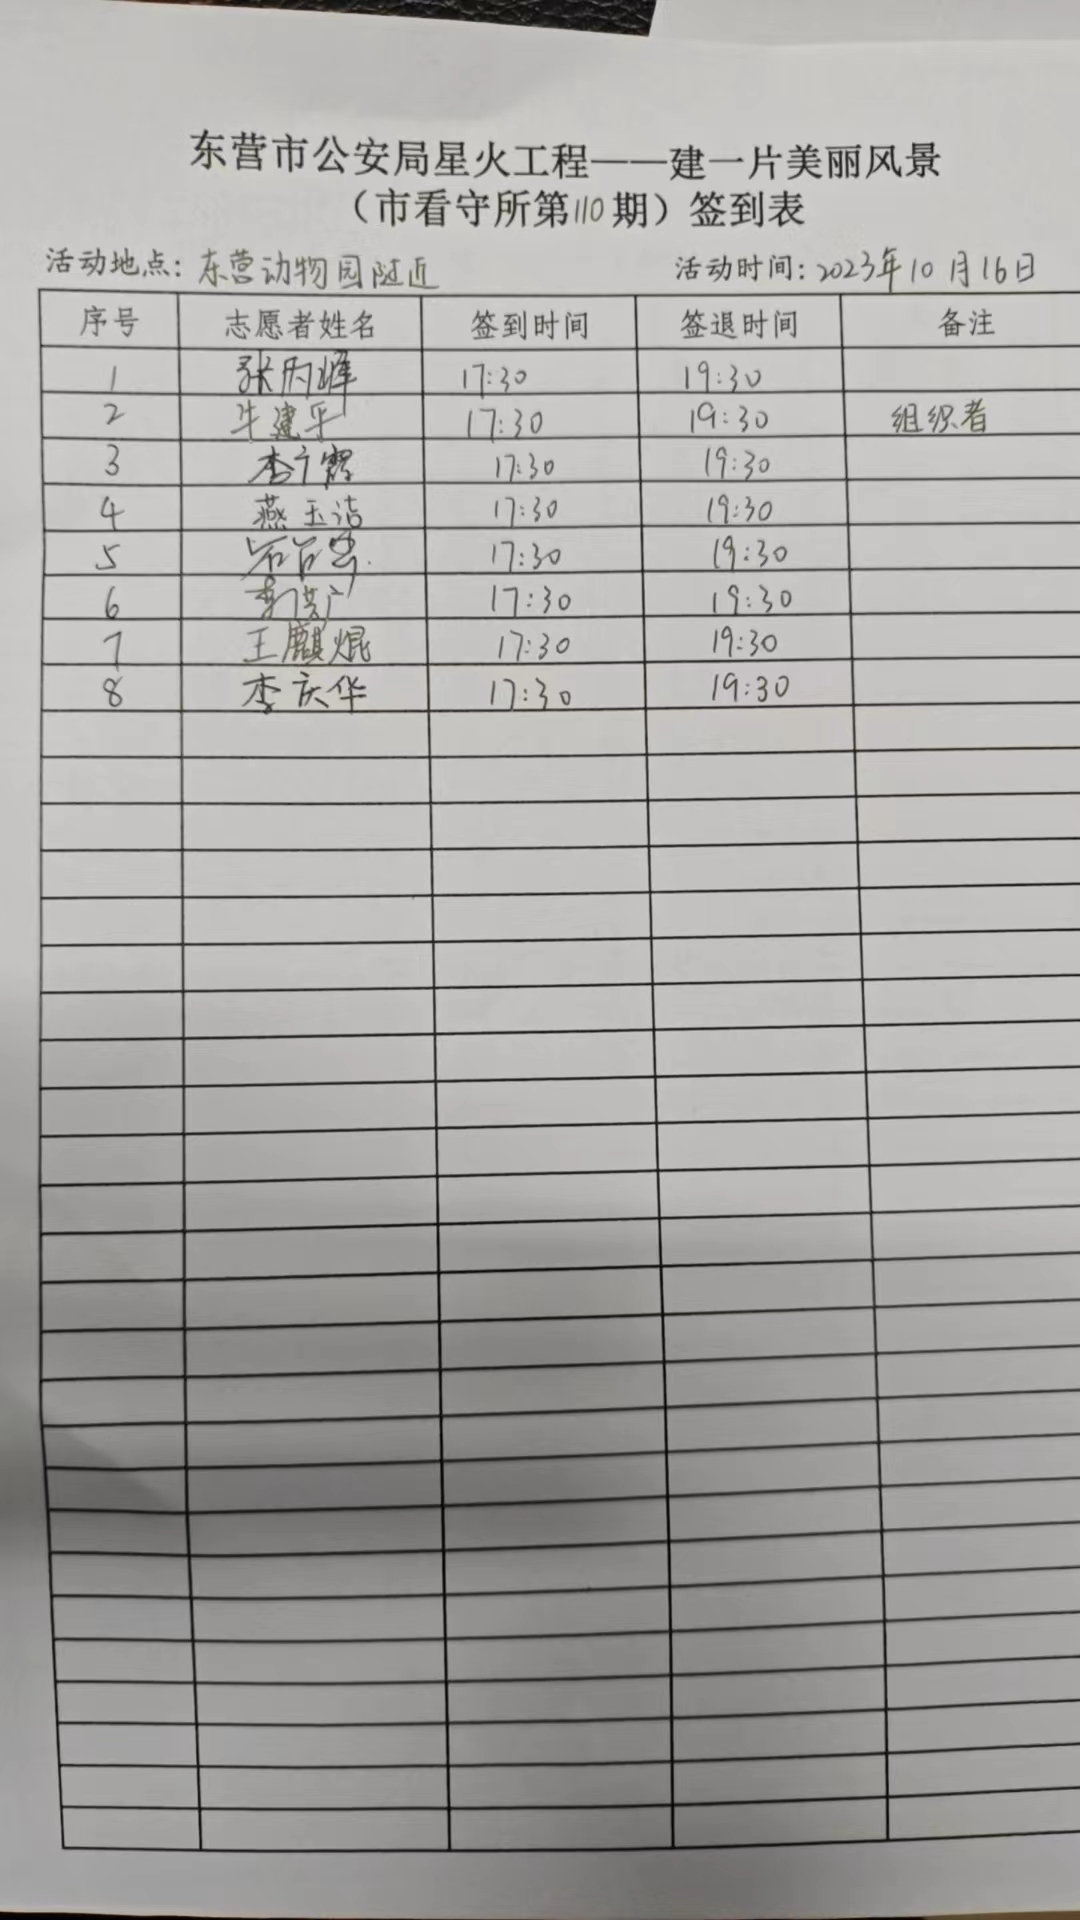 东营市公安局星火工程——建一片美丽风景
（市看守所第110期）签到表
活动地点：东营动物园附近 活动时间：2023年10月16日
序号 志愿者姓名 签到时间 签退时间 备注
1 张丙峰 17:30 19:30
2 牛建平 17:30 19:30 组织者
3 李 17:30 19:30
4 燕玉洁 17:30 19:30
5 17:30 19:30
6 17:30 19:30
7 王麒焜 17:30 19:30
8 李庆华 17:30 19:30